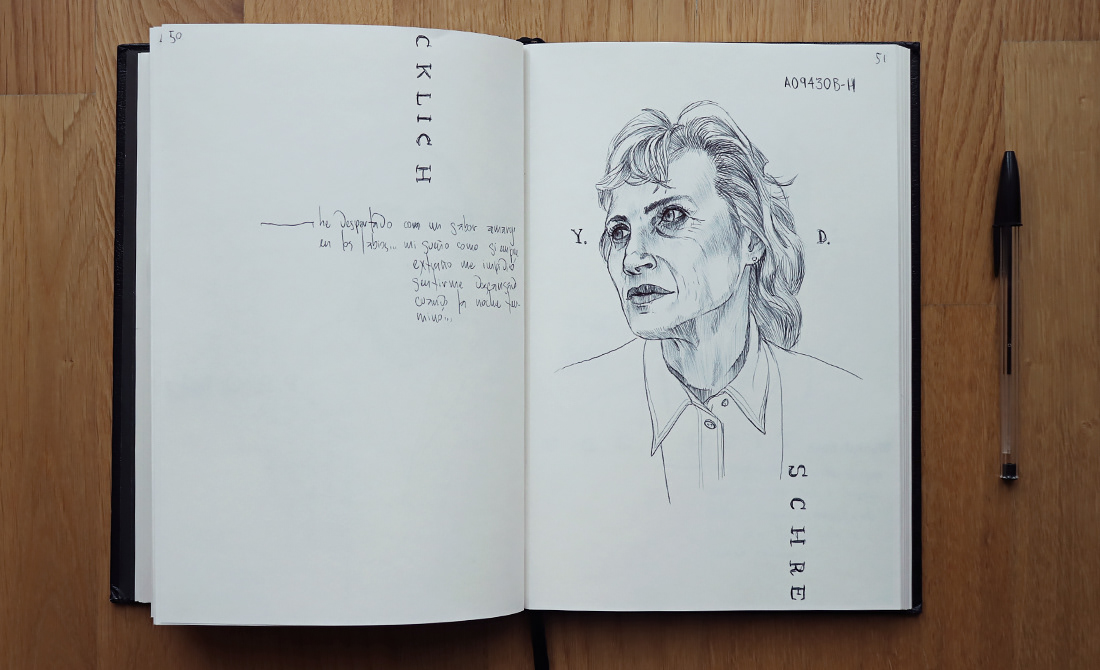 50
CKLICH
he despertado com un sabor amargo
en los labios... mi sueño como siempre
extraño me impidió
sentirme descansado
cuando la noche ter-
minó...
51
A09430B-H
Y.
D.
SCHRE